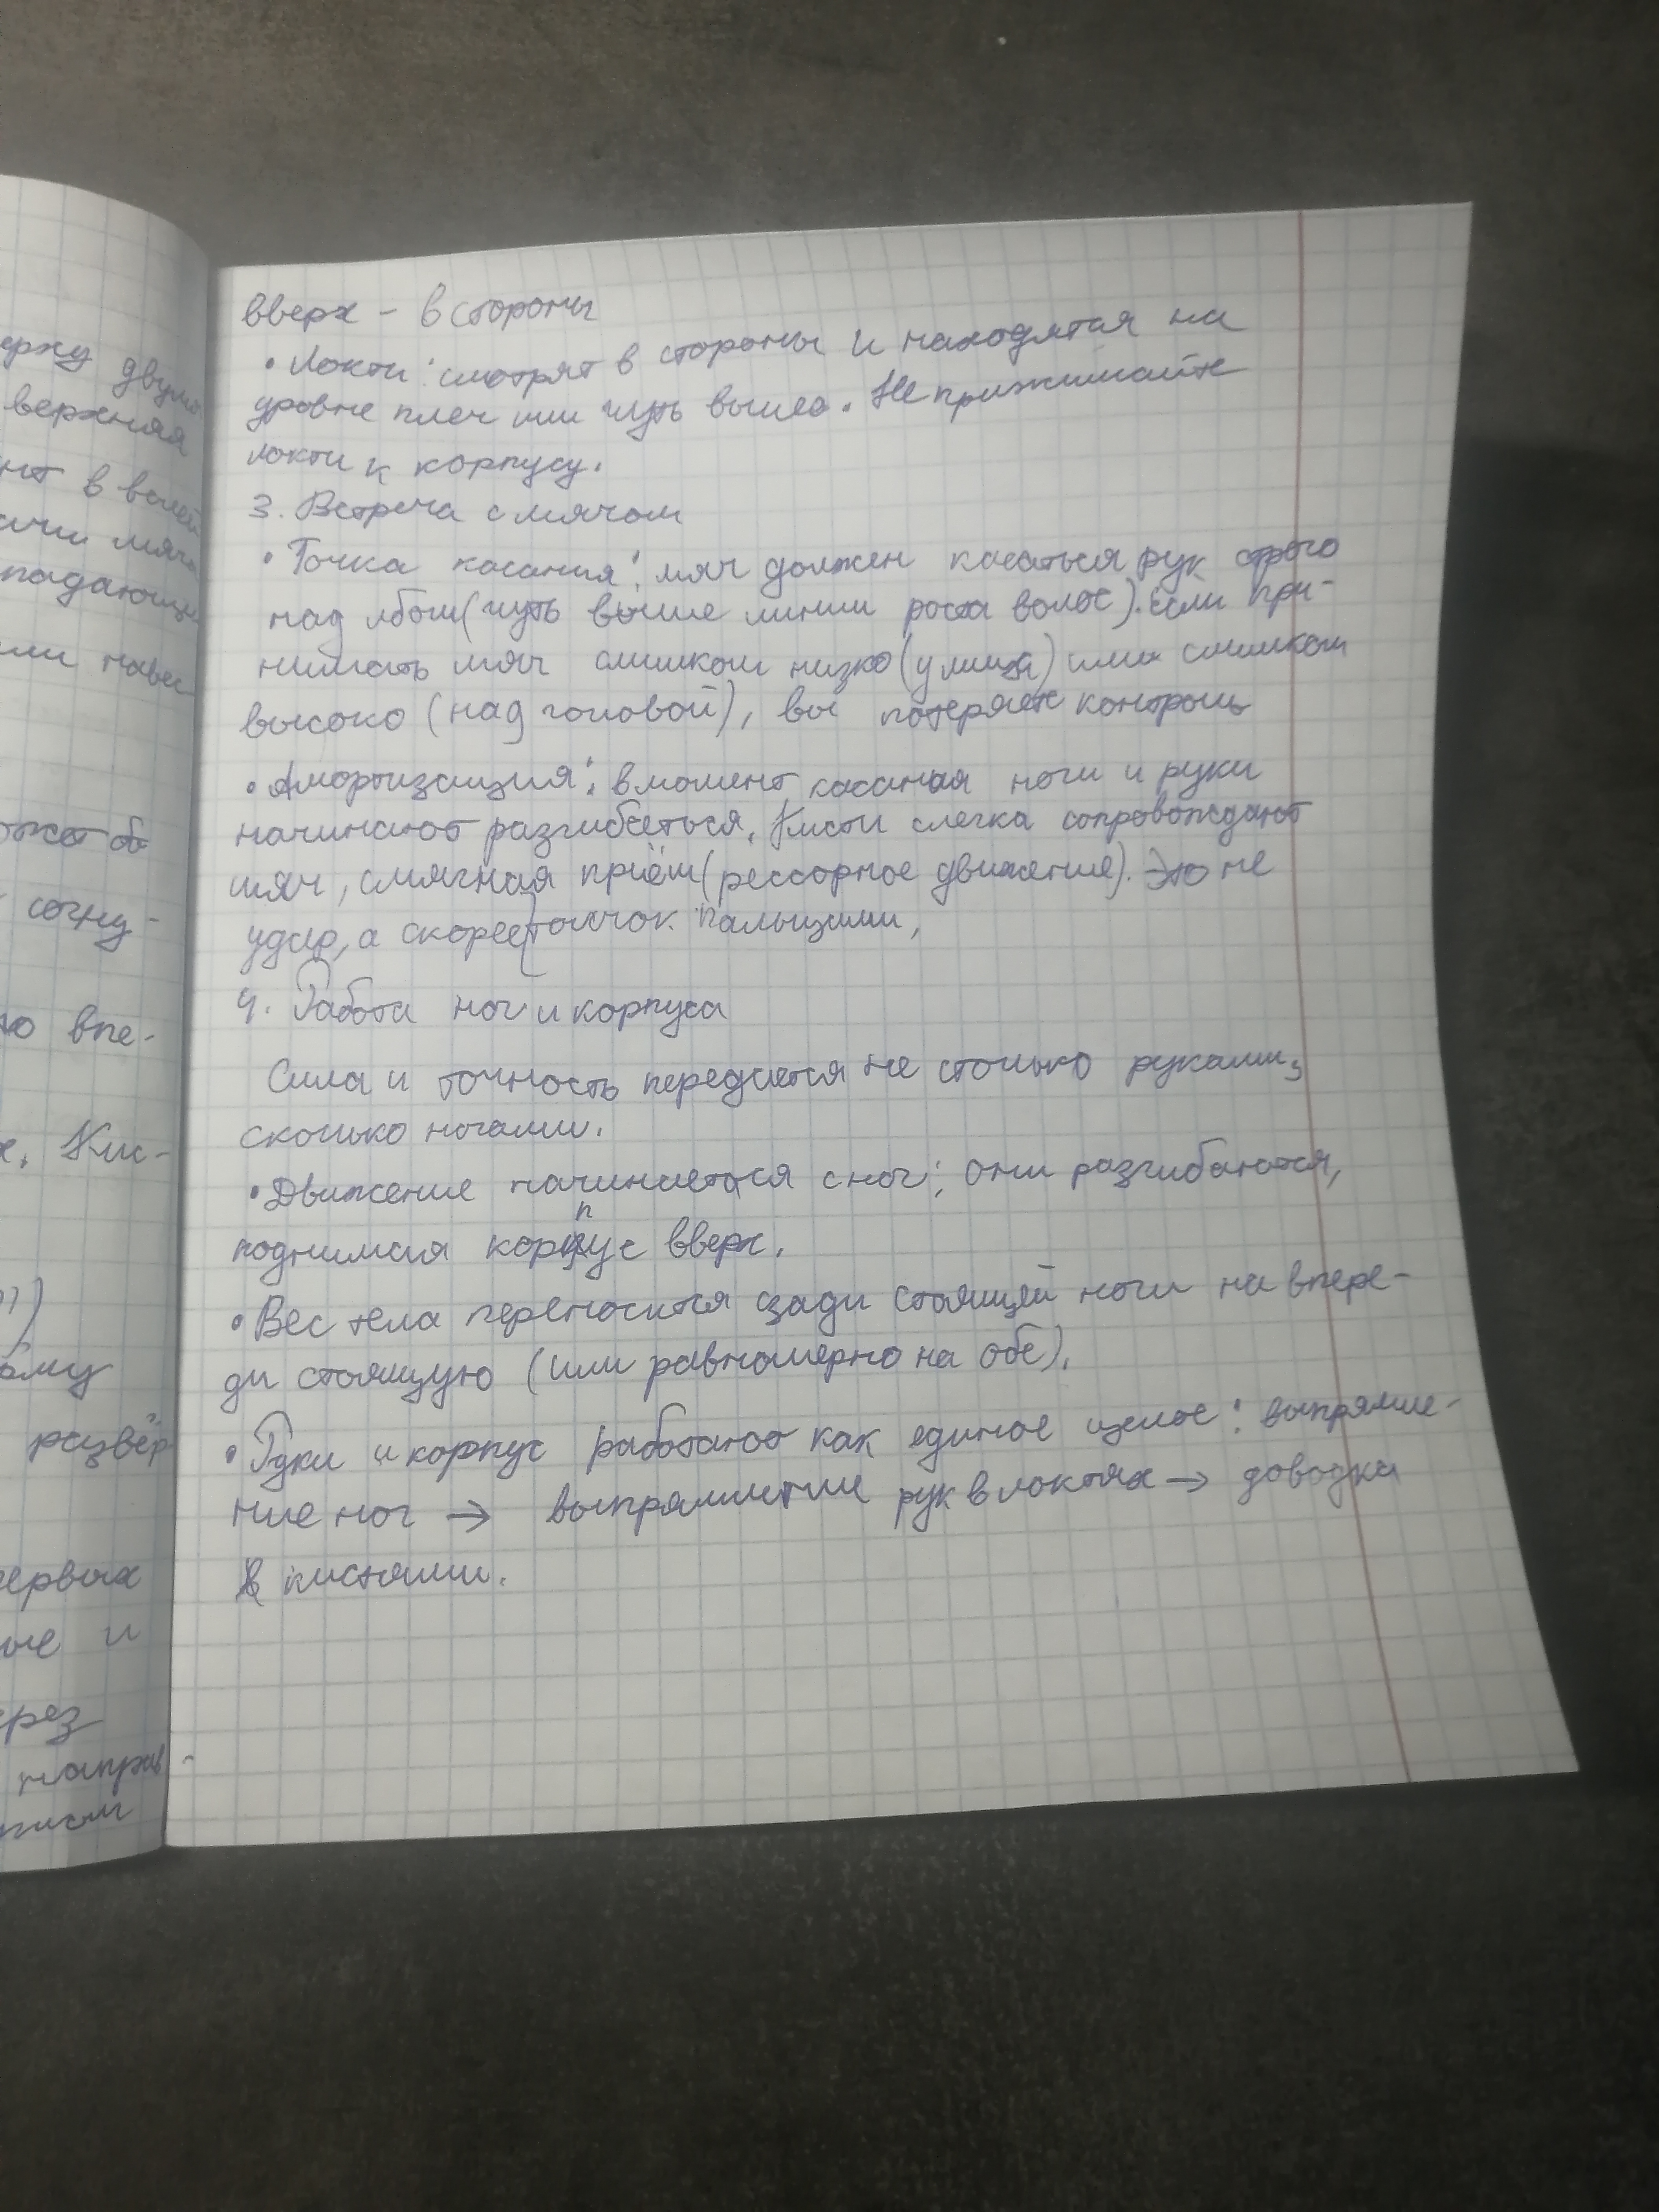 ержу двумя
верхняя
нт в волей
ачи мяча
падающи
или навес
ожет об
согну-
ю впе-
х. Кис-
ому
развёр
первых
ые и
ерез
направ-
вверх - в стороны
• Локти: смотрят в стороны и находятся на
уровне плеч или чуть выше. Не прижимайте
локти к корпусу.
3. Встреча с мячом
• Точка касания: мяч должен касаться рук строго
над лбом (чуть выше линии роста волос). Если при-
нимать мяч слишком низко (у лица) или слишком
высоко (над головой), вы потеряете контроль
• Амортизация: в момент касания ноги и руки
начинают разгибаться. Кисти слегка сопровождают
мяч, смягчая приём (рессорное движение). Это не
удар, а скорее толчок пальцами,
4. Работа ног и корпуса
Сила и точность передается не столько руками,
сколько ногами.
• Движение начинается с ног: они разгибаются,
поднимая корпус вверх.
• Вес тела переносится сзади стоящей ноги на впере-
ди стоящую (или равномерно на обе).
• Руки и корпус работают как единое целое: выпрямле-
ние ног → выпрямление рук в локтях → доводка
кистями.